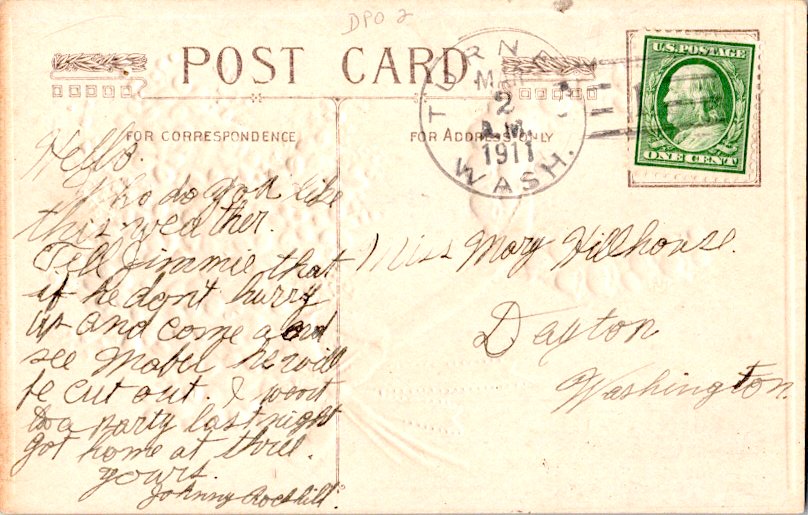 DPO 2
POST CARD
TURNER
MAR
2
A.M.
1911
WASH.
U.S. POSTAGE
ONE CENT
FOR CORRESPONDENCE
FOR ADDRESS ONLY
Hello.
do you like
this weather.
Tell Jimmie that
if he don't hurry
up and come and
see Mabel he will
be cut out. I went
to a party last night
got home at three.
yours.
Johnny
Miss Mary Hillhouse.
Dayton
Washington.